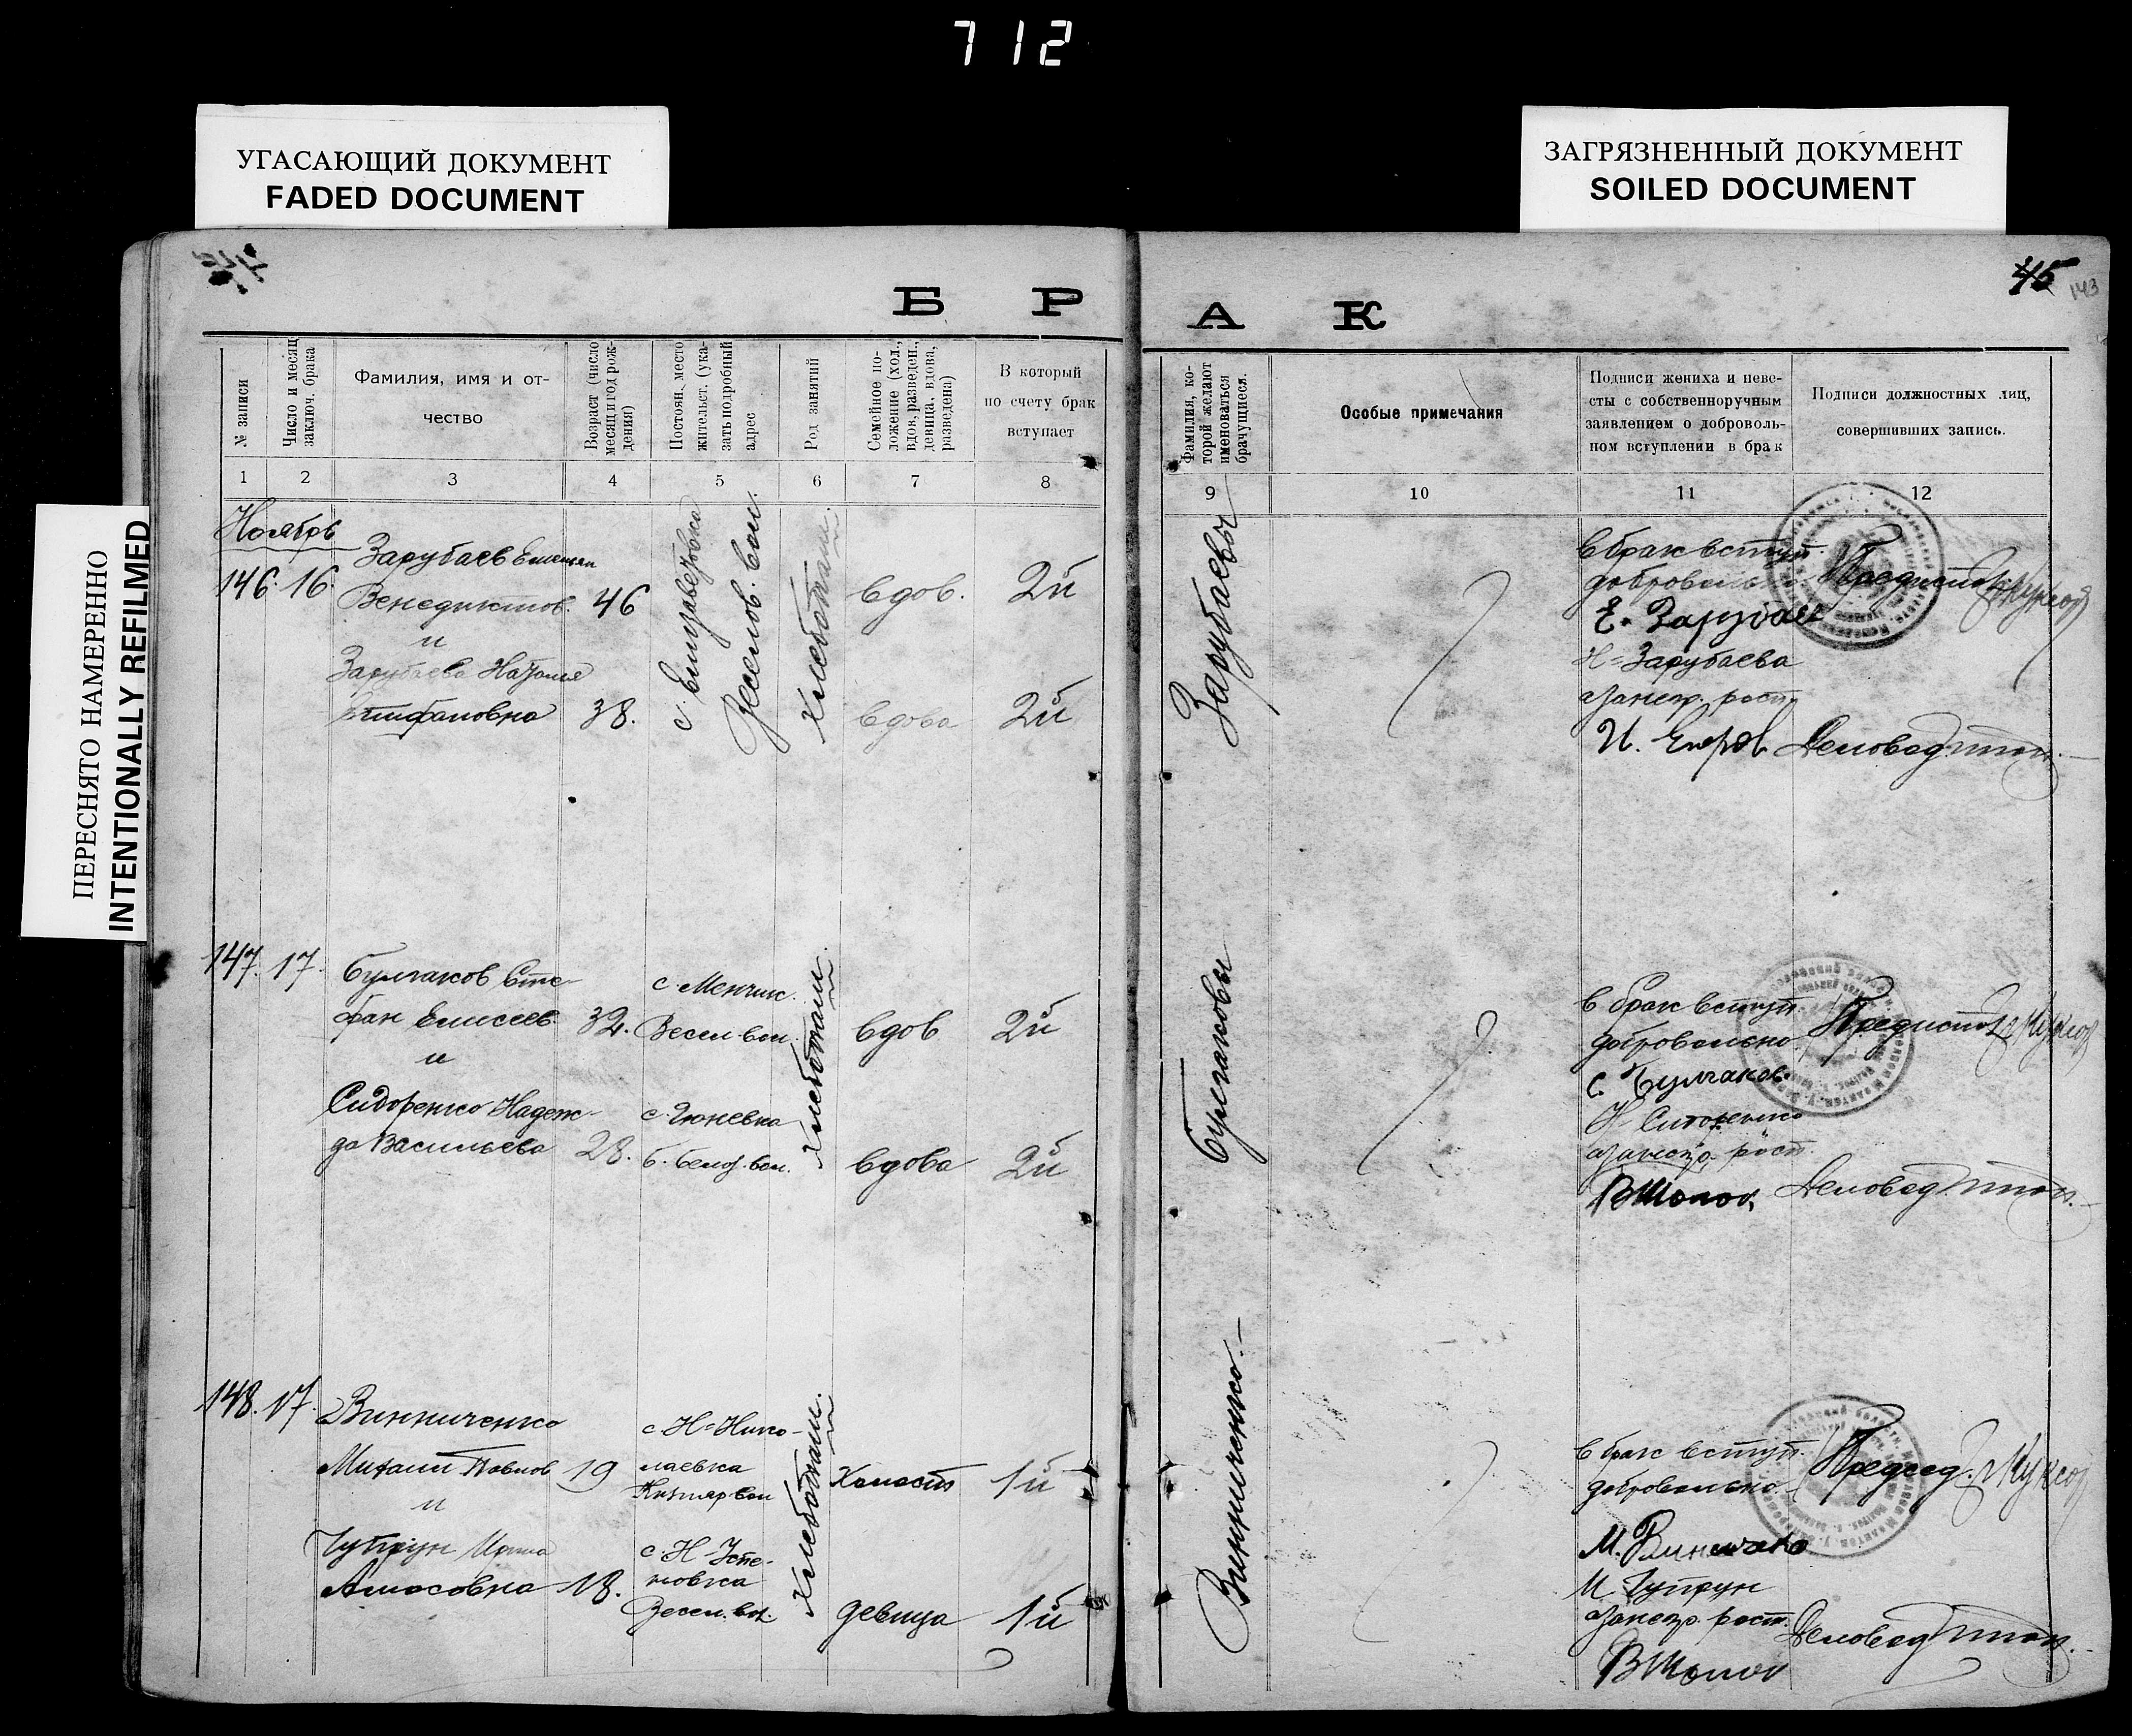 712
УГАСАЮЩИЙ ДОКУМЕНТ
FADED DOCUMENT
ЗАГРЯЗНЕННЫЙ ДОКУМЕНТ
SOILED DOCUMENT
ПЕРЕСНЯТО НАМЕРЕННО
INTENTIONALLY REFILMED
45
143
Б Р А К
№ записи
Число и месяц
заключ. брака
Фамилия, имя и от-
чество
Возраст (число
месяц и год рож-
дения)
Постоян. место
жительст. (ука-
зать подробный
адрес
Род занятий
Семейное по-
ложение (хол.,
вдов. разведен.,
девица, вдова,
разведена)
В который
по счету брак
вступает
1 2 3 4 5 6 7 8
Фамилия, ко-
торой желают
именоваться
брачущиеся.
Особые примечания
Подписи жениха и неве-
сты с собственноручным
заявлением о доброволь-
ном вступлении в брак
Подписи должностных лиц,
совершивших запись.
9 10 11 12
Ноябрь
146. 16.
Зарубаев Емельян
Венедиктов. 46
и
Зарубаева Наталия
Епифановна 38.
с. Елизаветовка
Веселов. вол.
хлебопаш.
вдов. 2й
вдова 2й
Зарубаевы
в брак вступ.
добровольно
Е. Зарубаев
Н= Зарубаева
а за негр. росп.
И. Егоров
Деловод
147. 17.
Булгаков Сте-
фан Елисеев. 32.
и
Сидоренко Надеж-
да Васильева 28.
с. Менчик.
Весел. вол.
с. Гюневка
б. Белоз. вол.
хлебопаш.
вдов 2й
вдова 2й
Булгаковы
в брак вступ.
добровольно.
С. Булгаков
Н= Сидоренко
а за негр. росп.
Деловод
148. 17.
Винниченко
Михаил Павлов 19
и
Чупрун Ирина
Амосовна 18.
с Н= Нико-
лаевка
вол
с. Н-Успе-
новка
Весел. вол.
хлебопаш.
Холост 1й
девица 1й
Винниченко.
в брак вступ.
добровольно.
М. Виниченко
И. Чупрун
за негр. росп.
Председ.
Деловод